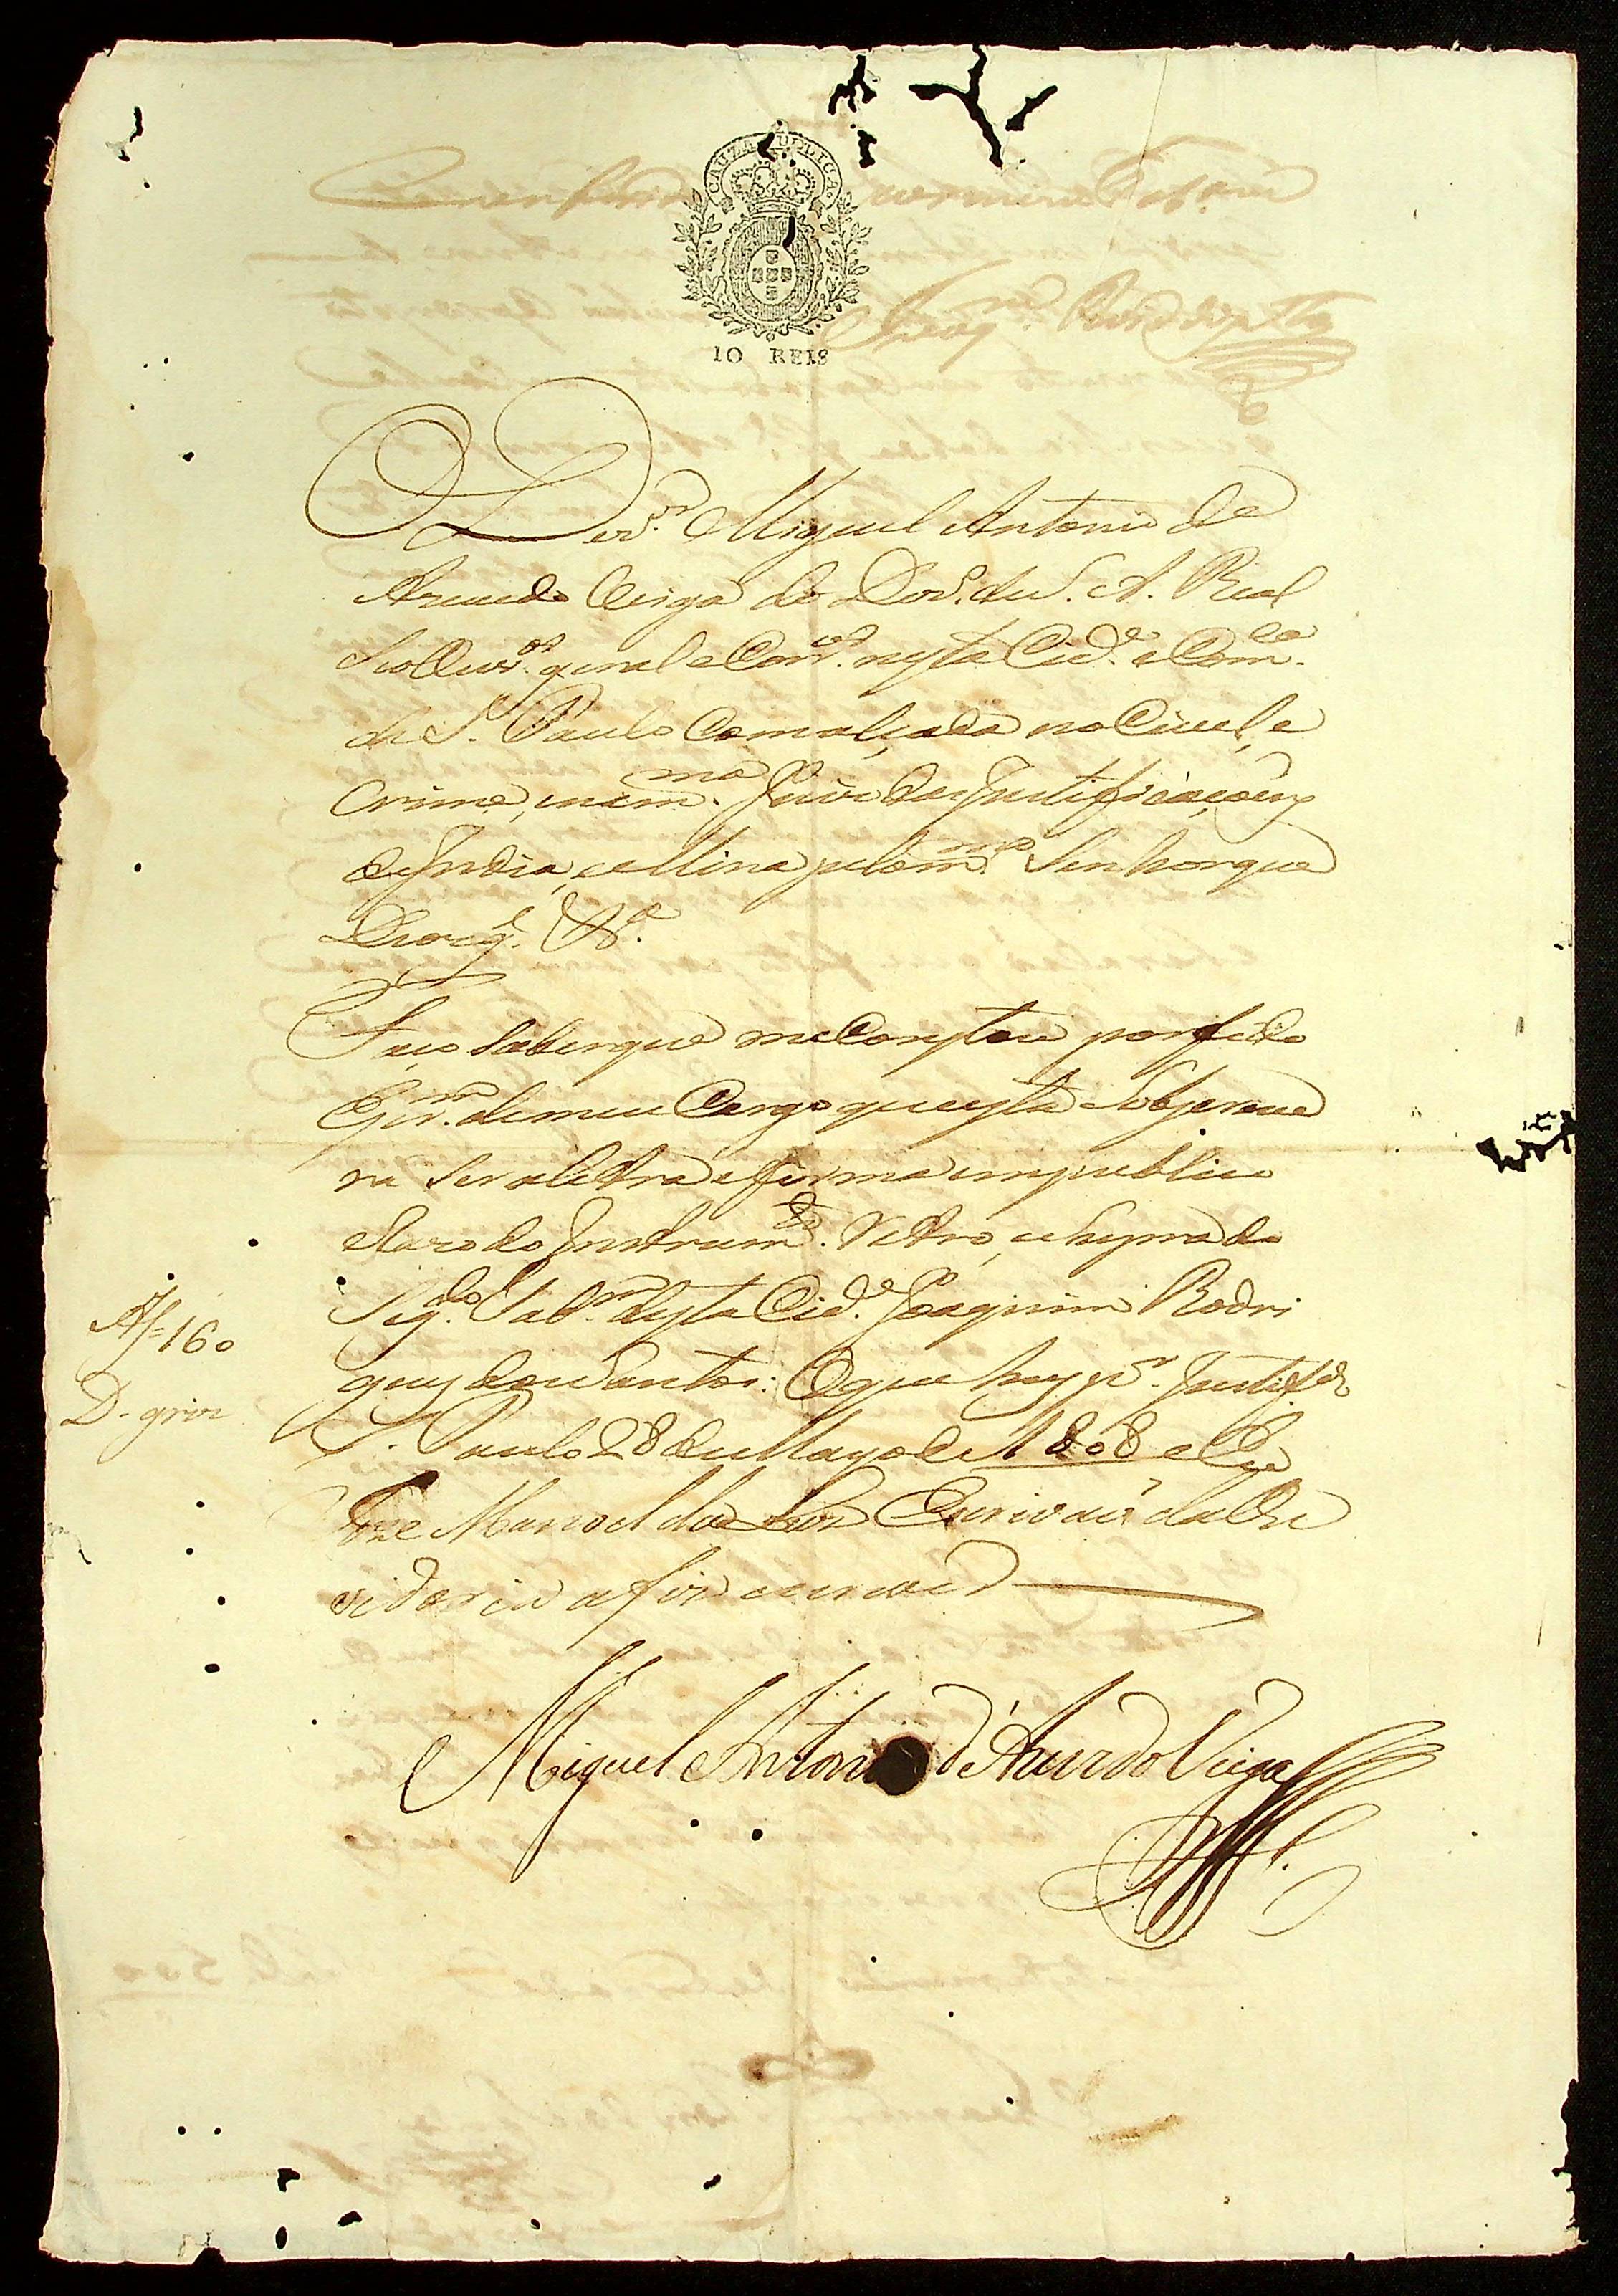 CAUZA PUBLICA
10 REIS
O D.or Miguel Antonio de
Azevedo Veiga do Dez.º de S. A. Real
seo Ouv.or geral e Corr.or nesta Cid.e e Com.ca
de S. Paulo com alçada no Civel, e
Crime, e nem.ma Juis das Justificaçoens
de India, e Mina pelo m.mo Senhor que
Deos g.e &.ª
Faço saber que me Constou por fé do
Escr.m de meu Cargo que esta sobscreve
ra ser a letra e firma em publico
e Razo do Instrum.to retro, e Supra do
Seg.do Tab.m desta Cid.e Joaquim Rodri
gues dos Santos: O que hey p.r Justif.do
S. Paulo 28 de Mayo de 1808 e Eu
Joze Manoel da Luz Escrivaõ da Ou
vidoria a fiz escrever
Af- 160
Miguel Antonio d'Azevedo Veiga